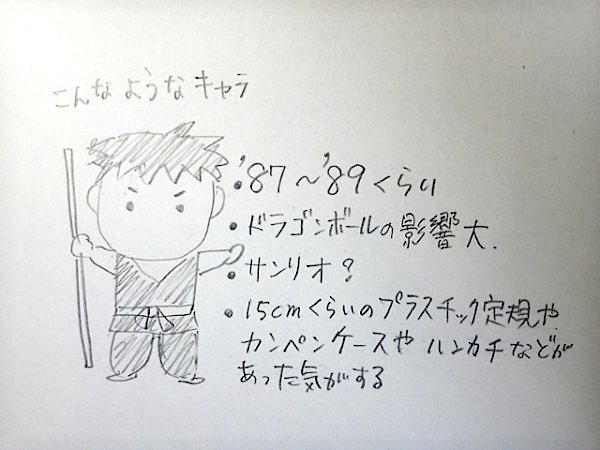 こんなようなキャラ
・'87～'89くらい
・ドラゴンボールの影響大.
・サンリオ?
・15cmくらいのプラスチック定規や
カンペンケースや ハンカチなどが
あった気がする